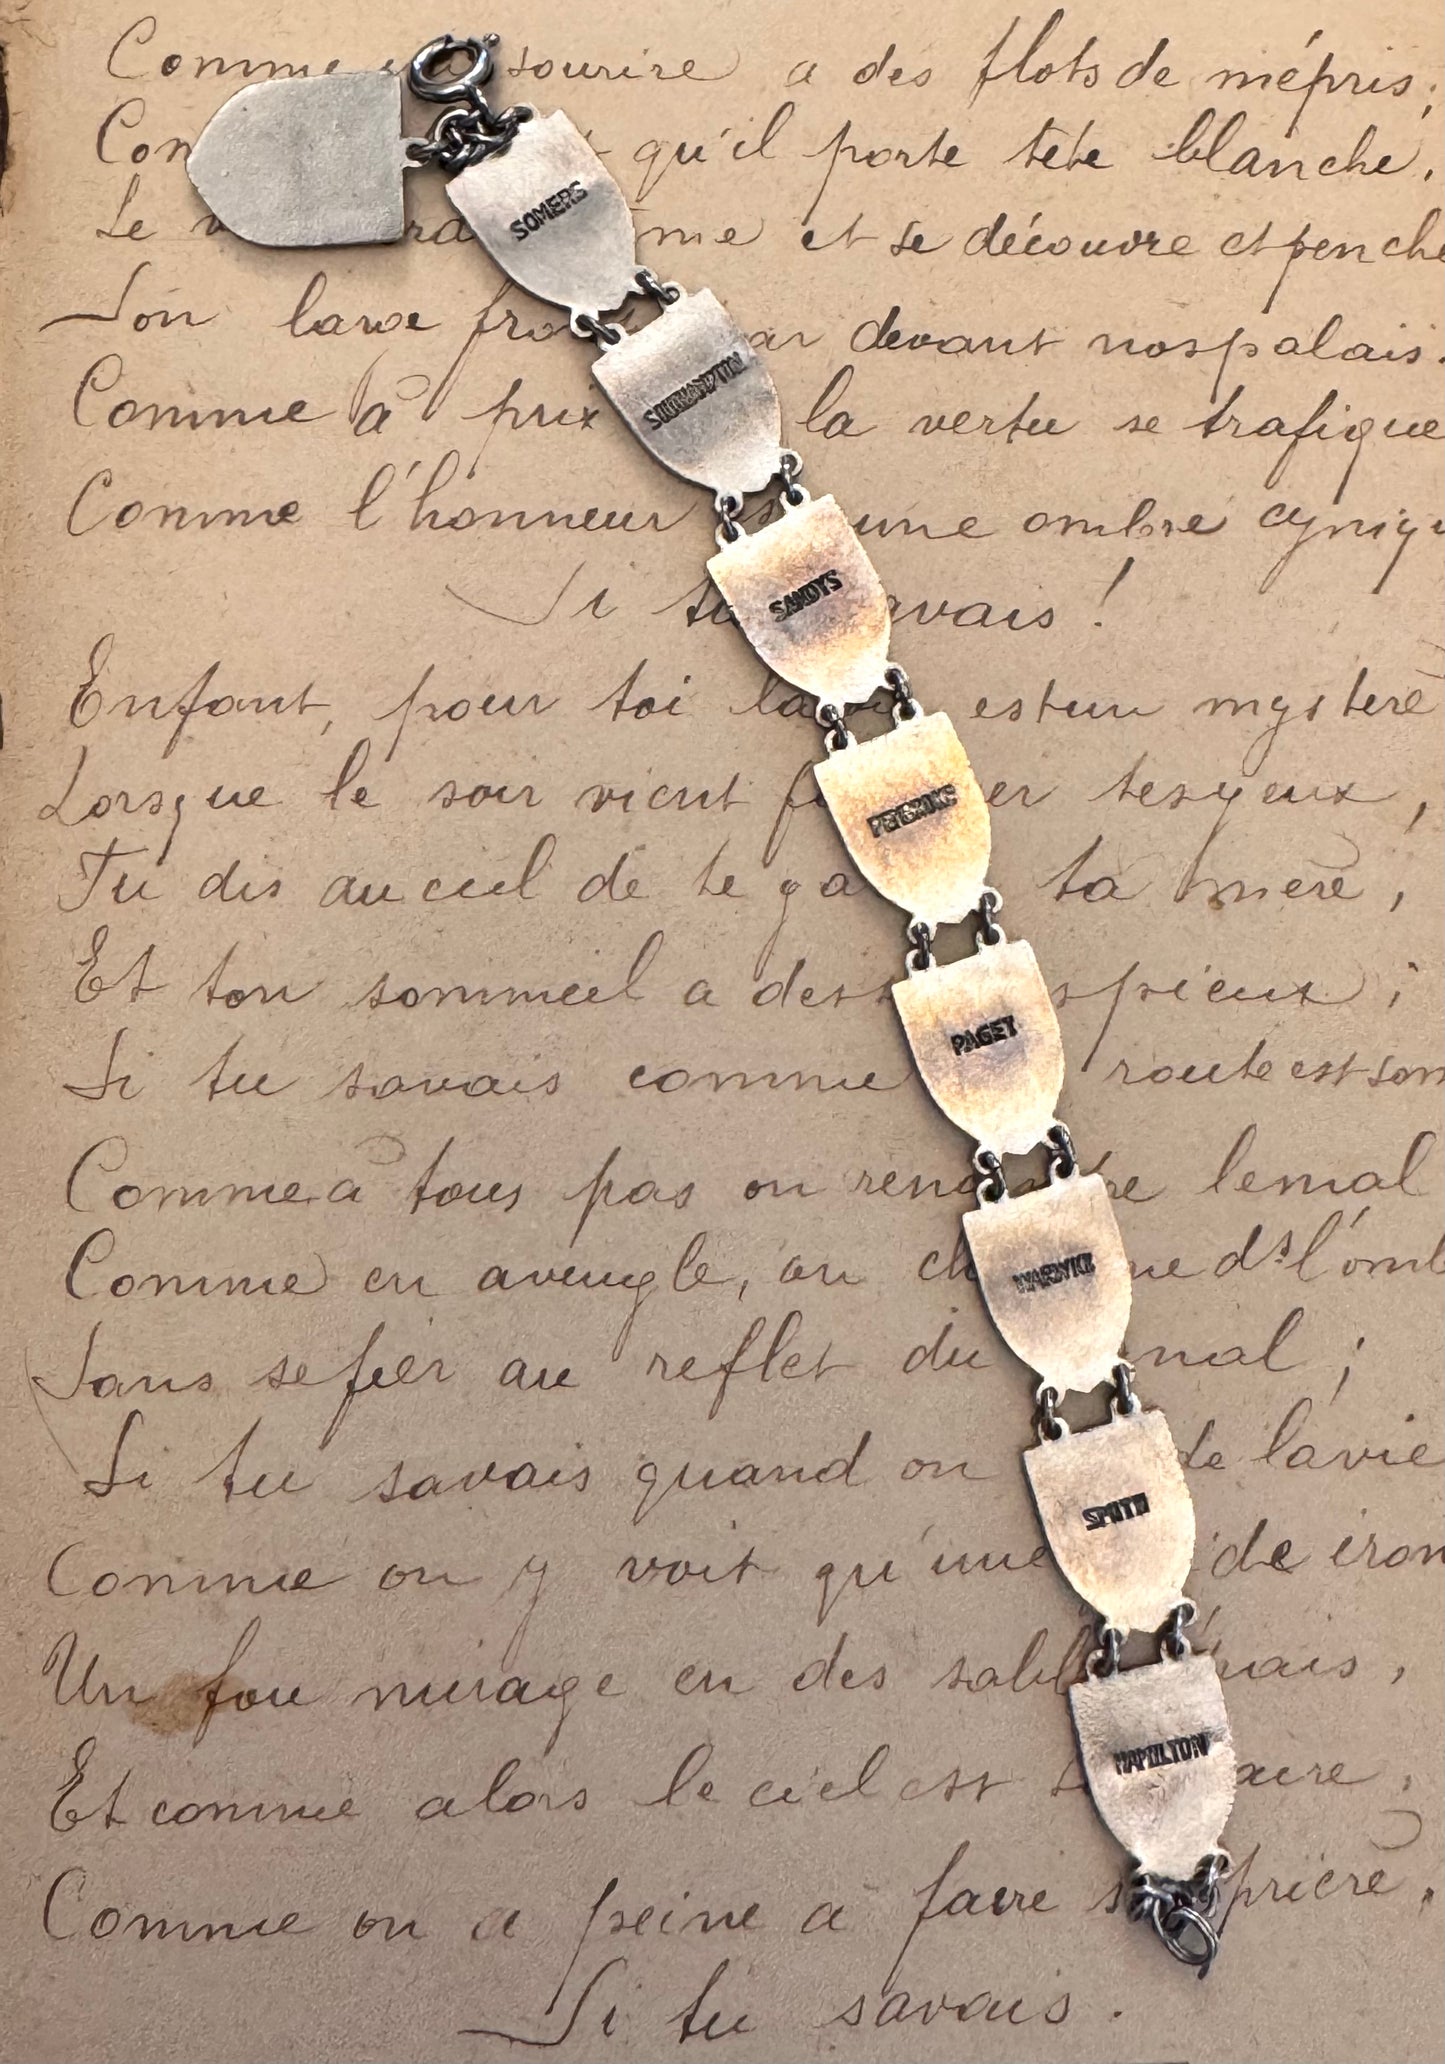 Comme sourire a des flots de mépris;
qu'il porte tête blanche,
Le et se découvre et penche
Son large devant nos palais.
Comme à prix la vertu se trafique
Comme l'honneur une ombre
Si tu savais!
Enfant, pour toi la est un mystère
Lorsque le soir vient tes yeux,
Tu dis au ciel de te ta mère,
Et ton sommeil a des pieux;
Si tu savais comme route est
Comme à tous pas on le mal
Comme en aveugle, on ds l'omb
Sans se fier au reflet du
Si tu savais quand on de la vie
Comme on y voit qu'une de
Un fou mirage en des
Et comme alors le ciel est
Comme on a peine à faire sa prière,
Si tu savais.
SOMERS
SOUTHAMPTON
SANDYS
PEMBROKE
PAGET
WARWICK
SMITH
HAMILTON